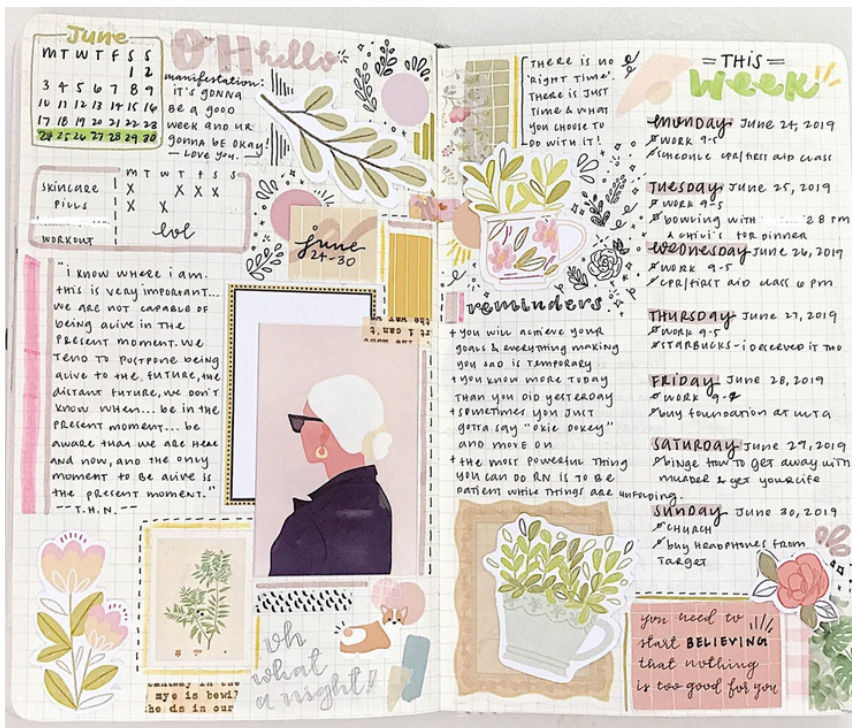 June
M T W T F S S
1 2
3 4 5 6 7 8 9
10 11 12 13 14 15 16
17 18 19 20 21 22 23
24 25 26 27 28 29 30
OH hello
manifestation:
it's gonna
be a good
week and ur
gonna be okay!
— love you. —
M T W T F S S
SKINCARE X X X X
PILLS X X
WORKOUT lol
"I know where I am.
this is very important...
we are not capable of
being alive in the
present moment. we
tend to postpone being
alive to the future, the
distant future, we don't
know when... be in the
present moment... be
aware than we are here
and now, and the only
moment to be alive is
the present moment."
-- T.H.N. --
june
24-30
rt i can't,
oh
what
a night!
There is no
'right time'.
There is just
time & what
you choose to
do with it!
reminders
+ you will achieve your
goals & everything making
you sad is temporary
+ you know more today
than you did yesterday
+ sometimes you just
gotta say "okie dokey"
and move on
+ the most powerful thing
you can do rn is to be
patient while things are unfolding.
= THIS =
Week
Monday June 24, 2019
work 9-5
schedule cpr/first aid class
Tuesday June 25, 2019
work 9-5
bowling with 8 pm
& chili's for dinner
Wednesday June 26, 2019
work 9-5
cpr/first aid class 6 pm
Thursday June 27, 2019
work 9-5
Starbucks - i deserved it tho
Friday June 28, 2019
work
buy foundation at ulta
Saturday June 29, 2019
binge how to get away with
murder & get your life
Sunday June 30, 2019
church
buy headphones from
target
you need to
start BELIEVING
that nothing
is too good for you